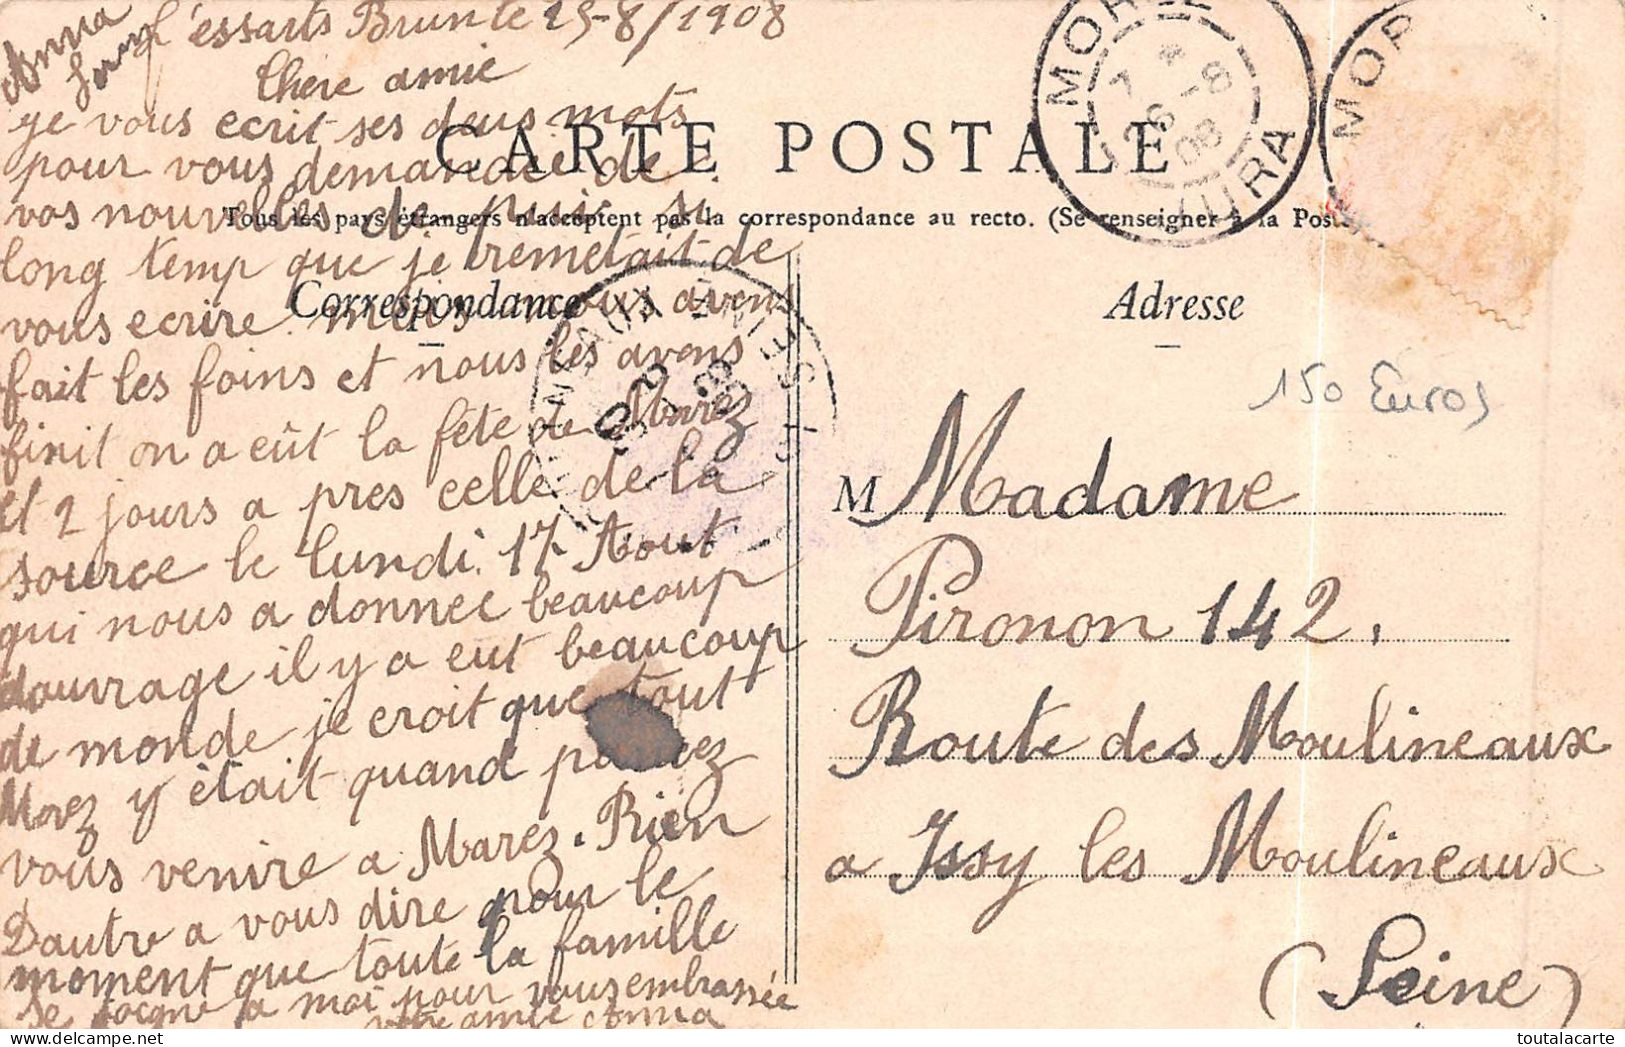 L'essarts Brunte 25-8/1908
Anna
Chere amie
ge vous ecrit ses deus mots
pour vous demandee de
vos nouvelles de puis si
long temp que je remetait de
vous ecrire mais nous avens
fait les foins et nous les avens
finit on a eût la fête de Morez
et 2 jours a pres celle de la
source le lundi 17 Aout
qui nous a donnee beaucoup
douvrage il y a eut beaucoup
de monde je croit que tout
Morez y était quand
vous venire a Marez. Rien
Dautre a vous dire pour le
moment que toute la famille
se a moi pour vous embrassée
votre amie Anna
CARTE POSTALE
Tous les pays étrangers n'acceptent pas la correspondance au recto. (Se renseigner à la Poste)
Correspondance
Adresse
MOREZ
7 * 26 -8 08
JURA
MOR
150 Euros
M Madame
Pironon 142.
Route des Moulineaux
a Issy les Moulineaux
(Seine)
toutalacarte